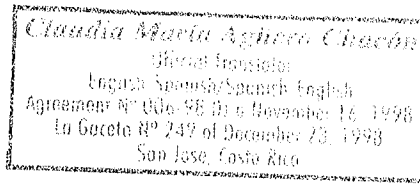 Claudia María Agüero Chacón
Official Translator
English Spanish/Spanish English
Agreement Nº 006-98 DJ November 16, 1998
La Gaceta Nº 249 of December 23, 1998
San Jose, Costa Rica